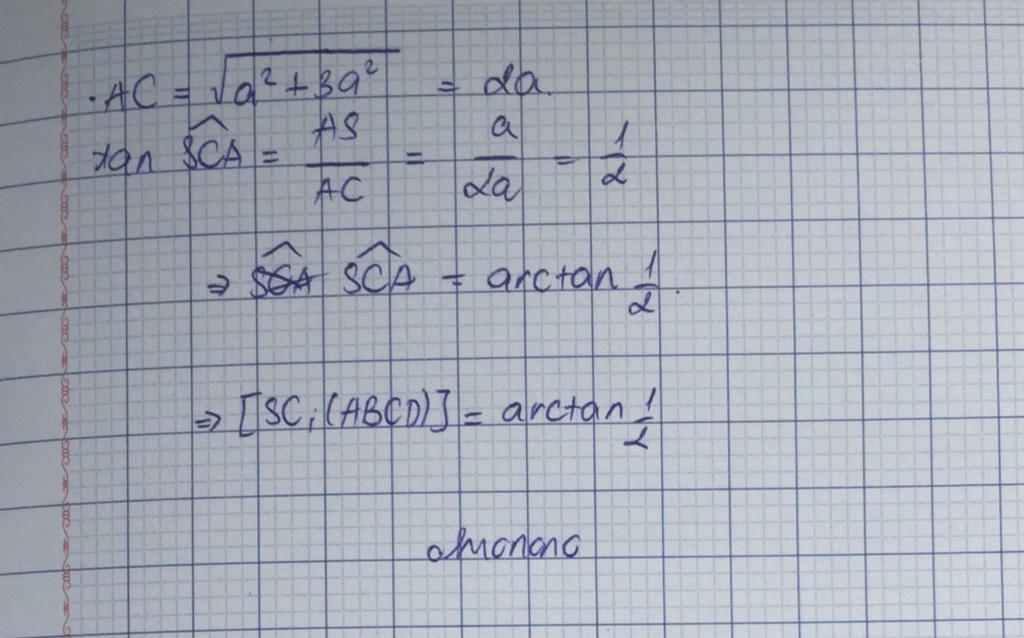 . AC = √(a² + 3a²) = 2a.
tan SCA = AS/AC = a/2a = 1/2
⇒ SCA = arctan 1/2.
⇒ [SC; (ABCD)] = arctan 1/2